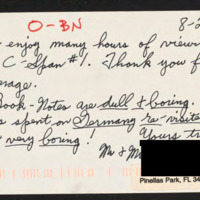 O-BN 8-2
enjoy many hours of viewin
C-Span #1. Thank you f
erage.
ook-Notes are dull & boring.
s spent on Germany re-visite
very boring! Yours tr
Mr & M
Pinellas Park, FL 34